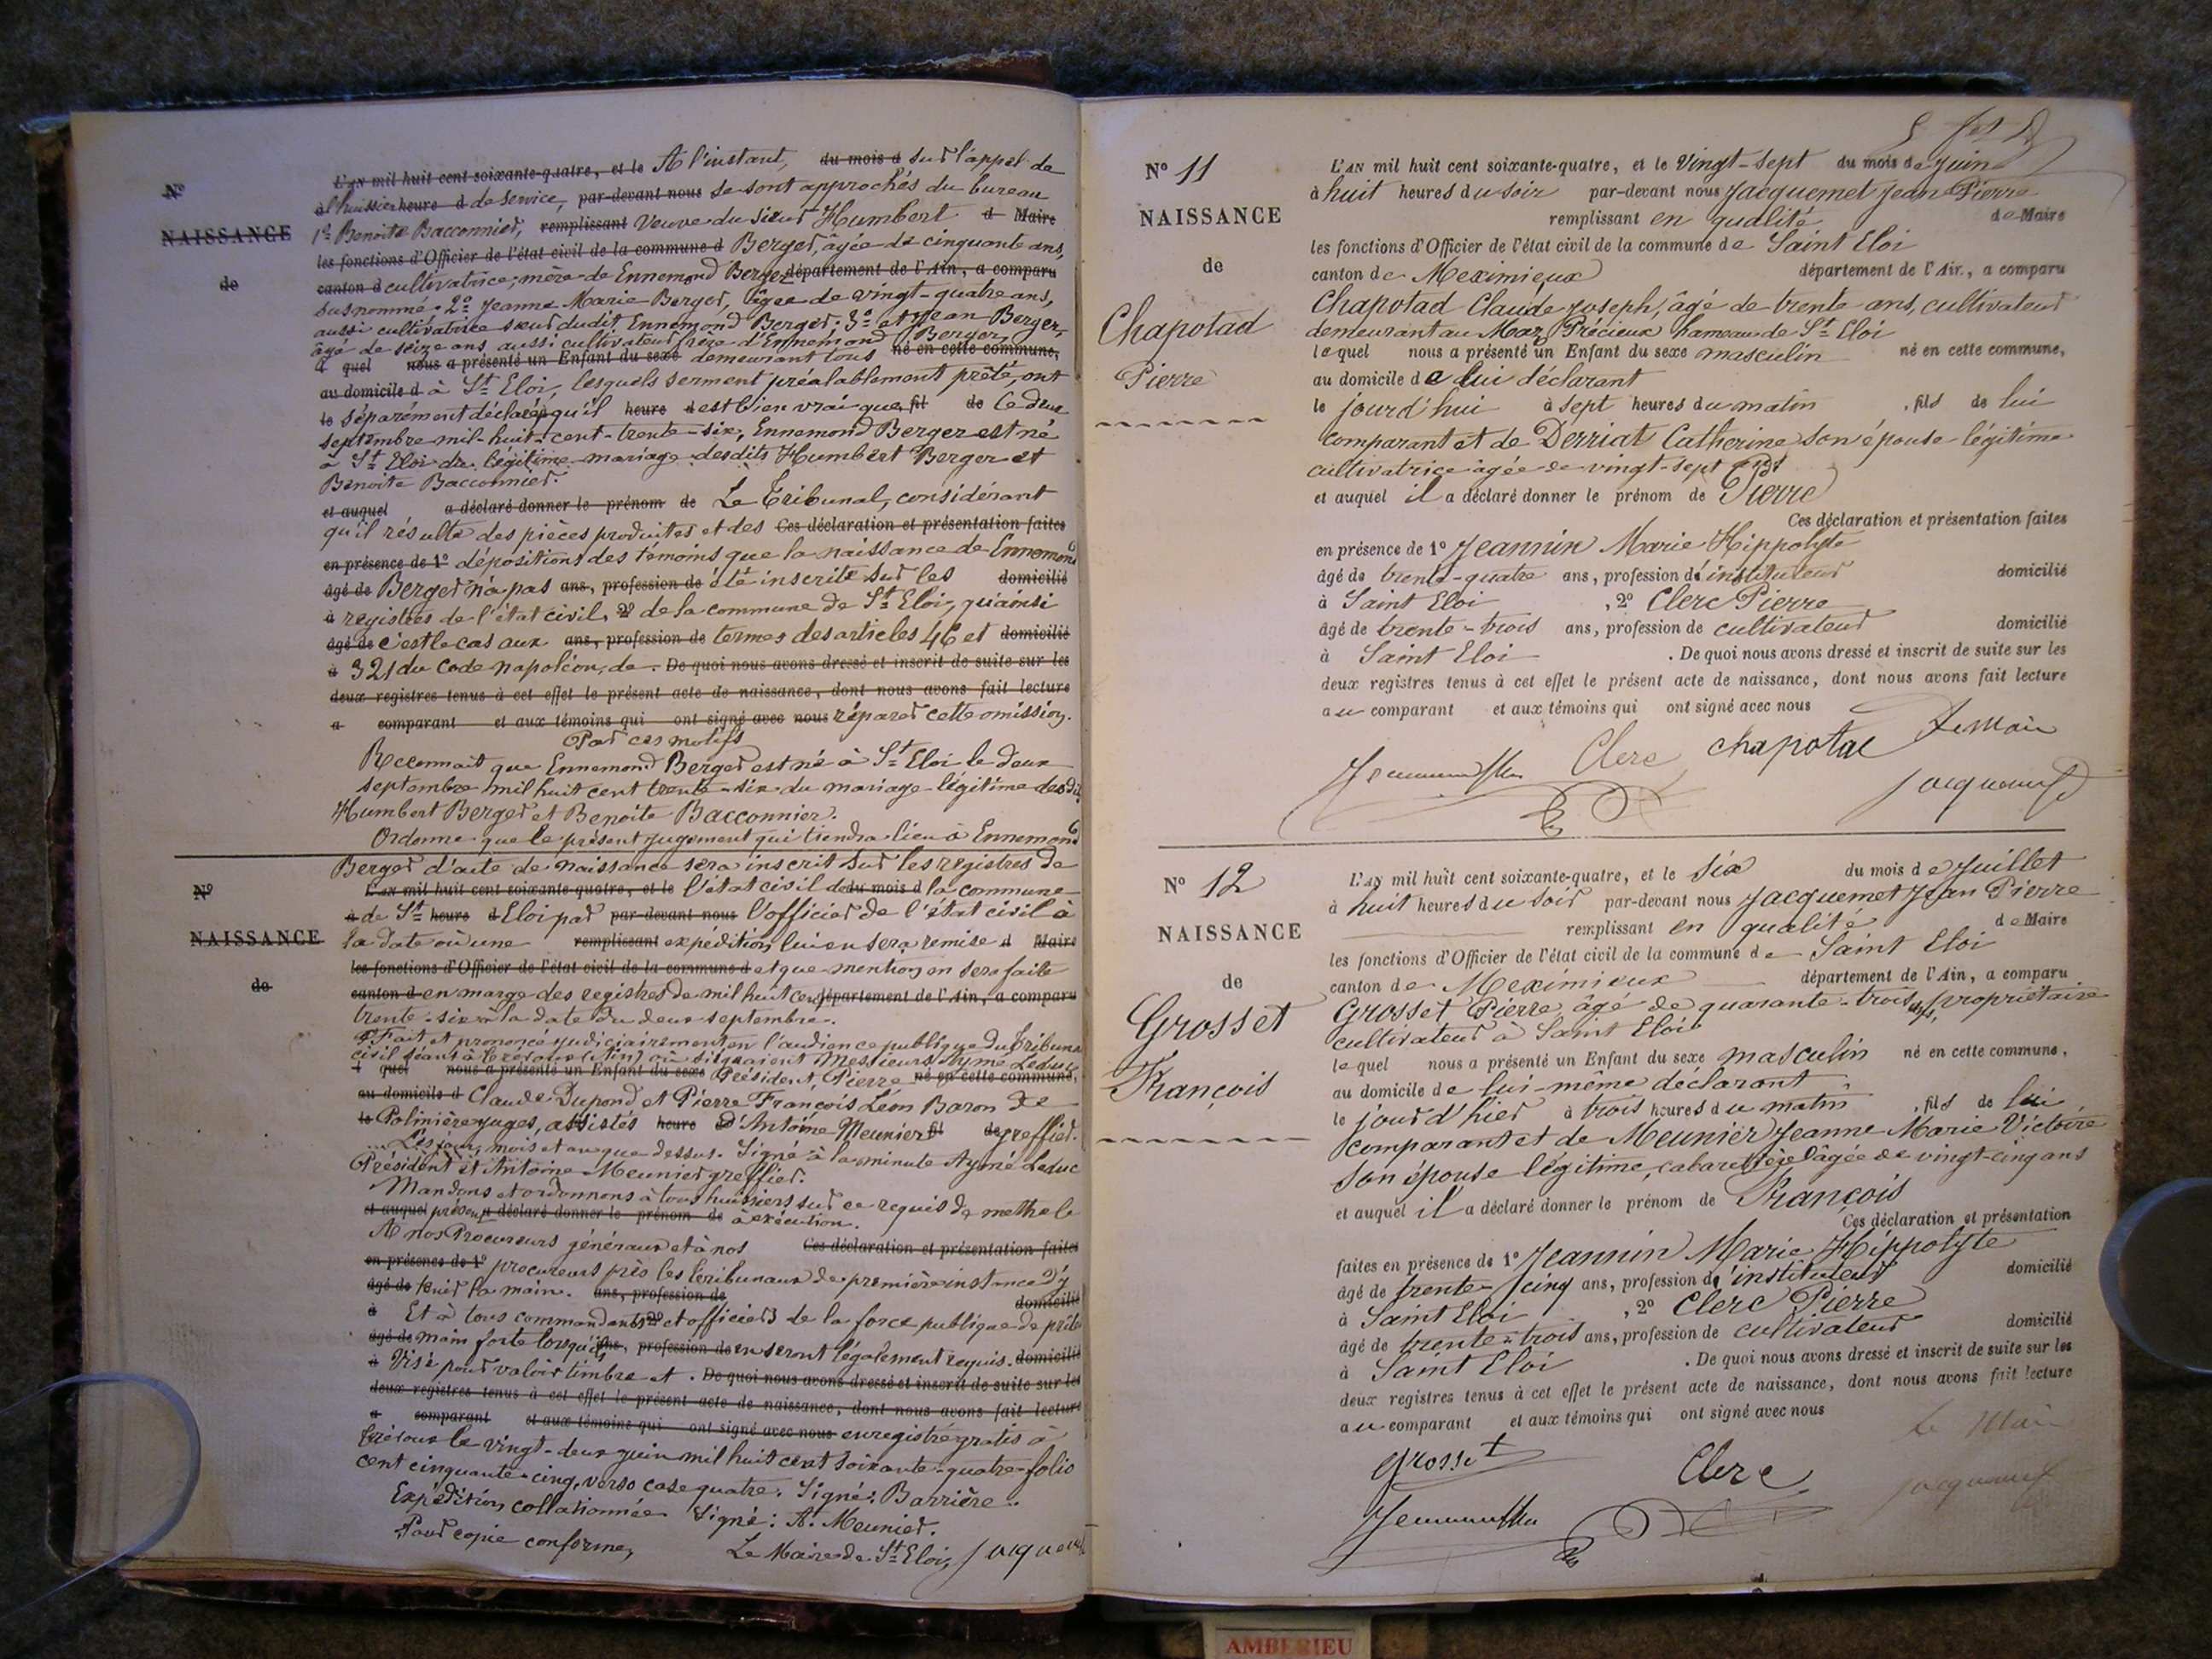 N°
NAISSANCE
de
L'AN mil huit cent soixante-quatre, et le A l'instant, du mois d sur l'appel de
à l'huissier heure d de service, par-devant nous se sont approchés du bureau
1° Benoite Bacconnier, remplissant Veuve du sieur Humbert d Maire
les fonctions d'Officier de l'état civil de la commune d Berger, âgée de cinquante ans,
canton d cultivatrice, mère de Ennemond Berger département de l'Ain, a comparu
susnommé. 2° Jeanne Marie Berger, âgée de vingt-quatre ans,
aussi cultivatrice sœur dudit Ennemond Berger; 3° et Jean Berger,
âgé de seize ans aussi cultivateur frère d'Ennemond Berger,
l quel nous a présenté un Enfant du sexe demeurant tous né en cette commune,
au domicile d à St Eloi, lesquels serment préalablement prêté, ont
le séparément déclaré qu'il heure d est bien vrai que, fil de le deux
septembre mil-huit-cent-trente-six, Ennemond Berger est né
à St Eloi du légitime mariage desdits Humbert Berger et
Benoite Bacconnier.
et auquel a déclaré donner le prénom de Le Tribunal, considérant
qu'il résulte des pièces produites et des Ces déclaration et présentation faites
en présence de 1° dépositions des témoins que la naissance de Ennemond
âgé de Berger n'a pas ans, profession de été inscrite sur les domicilié
à registres de l'état civil, 2° de la commune de St Eloi, qu'ainsi
âgé de c'est le cas aux ans, profession de termes des articles 46 et domicilié
à 321 du Code Napoléon, de . De quoi nous avons dressé et inscrit de suite sur les
deux registres tenus à cet effet le présent acte de naissance, dont nous avons fait lecture
a comparant et aux témoins qui ont signé avec nous réparer cette omission.
Par ces motifs
Reconnait que Ennemond Berger est né à St Eloi le deux
septembre mil huit cent trente-six du mariage légitime desdits
Humbert Berger et Benoite Bacconnier.
Ordonne que le présent jugement qui tiendra lieu à Ennemond
Berger d'acte de naissance sera inscrit sur les registres de
N°
NAISSANCE
de
L'AN mil huit cent soixante-quatre, et le l'état civil de du mois d la commune
à de St heure d Eloi par par-devant nous l'officier de l'état civil à
la date où une remplissant expédition lui en sera remise d Maire
les fonctions d'Officier de l'état civil de la commune d et que mention en sera faite
canton d en marge des registres de mil huit cent département de l'Ain, a comparu
trente-six à la date du deux septembre.
Fait et prononcé judiciairement en l'audience publique du Tribunal
civil séant à Trévoux (Ain) où siégeaient Messieurs Aymé Leduc
l quel nous a présenté un Enfant du sexe Président, Pierre né en cette commune,
au domicile d Claude Dupond et Pierre François Léon Baron de
le Polinière juges, assistés heure d d'Antoine Meunier fil de greffier.
Les jour, mois et an que dessus. Signé à la minute Aymé Leduc
Président et Antoine Meunier greffier.
Mandons et ordonnons à tous huissiers sur ce requis de mettre le
et auquel présent a déclaré donner le prénom de à exécution.
A nos Procureurs généraux et à nos Ces déclaration et présentation faites
en présence de 1° procureurs près les tribunaux de première instance d'y
âgé de tenir la main. ans, profession de domicilié
à Et à tous commandants 2° et officiers de la force publique de prêter
âgé de main forte lorsqu'ils ans, profession de en seront légalement requis. domicilié
à Visé pour valoir timbre et . De quoi nous avons dressé et inscrit de suite sur les
deux registres tenus à cet effet le présent acte de naissance, dont nous avons fait lecture
a comparant et aux témoins qui ont signé avec nous enregistré gratis à
Trévoux le vingt-deux juin mil huit cent soixante-quatre folio
cent cinquante-cinq, verso case quatre. Signé: Barrière.
Expédition collationnée Signé: A. Meunier.
Pour copie conforme,
Le Maire de St Eloi, Jacquemet
N° 11
NAISSANCE
de
Chapotad
Pierre
L'AN mil huit cent soixante-quatre, et le Vingt-sept du mois de Juin
à huit heures du soir par-devant nous Jacquemet Jean Pierre
remplissant en qualité de Maire
les fonctions d'Officier de l'état civil de la commune de Saint Eloi
canton de Meximieux département de l'Ain, a comparu
Chapotad Claude Joseph, âgé de trente ans, cultivateur
demeurant au Maz Précieux hameau de St Eloi
lequel nous a présenté un Enfant du sexe masculin né en cette commune,
au domicile de lui déclarant
le jourd'hui à sept heures du matin , fils de lui
comparant et de Derriat Catherine son épouse légitime
cultivatrice âgée de vingt-sept ans
et auquel il a déclaré donner le prénom de Pierre
Ces déclaration et présentation faites
en présence de 1° Jeannin Marie Hippolyte
âgé de trente-quatre ans, profession d'instituteur domicilié
à Saint Eloi , 2° Clerc Pierre
âgé de trente-trois ans, profession de cultivateur domicilié
à Saint Eloi . De quoi nous avons dressé et inscrit de suite sur les
deux registres tenus à cet effet le présent acte de naissance, dont nous avons fait lecture
au comparant et aux témoins qui ont signé avec nous
Clerc chapotac Le Maire
Jacquemet
N° 12
NAISSANCE
de
Grosset
François
L'AN mil huit cent soixante-quatre, et le Six du mois de Juillet
à huit heures du soir par-devant nous Jacquemet Jean Pierre
remplissant en qualité de Maire
les fonctions d'Officier de l'état civil de la commune de Saint Eloi
canton de Meximieux département de l'Ain, a comparu
Grosset Pierre, âgé de quarante-trois ans, propriétaire
cultivateur à Saint Eloi
lequel nous a présenté un Enfant du sexe masculin né en cette commune,
au domicile de lui-même déclarant
le jour d'hier à trois heures du matin , fils de lui
comparant et de Meunier Jeanne Marie Victoire
son épouse légitime, cabaretière âgée de vingt-cinq ans
et auquel il a déclaré donner le prénom de François
Ces déclaration et présentation
faites en présence de 1° Jeannin Marie Hippolyte
âgé de trente-cinq ans, profession d'instituteur domicilié
à Saint Eloi , 2° Clerc Pierre
âgé de trente-trois ans, profession de cultivateur domicilié
à Saint Eloi . De quoi nous avons dressé et inscrit de suite sur les
deux registres tenus à cet effet le présent acte de naissance, dont nous avons fait lecture
au comparant et aux témoins qui ont signé avec nous
Le Maire
Grosset Clerc Jacquemet
AMBERIEU